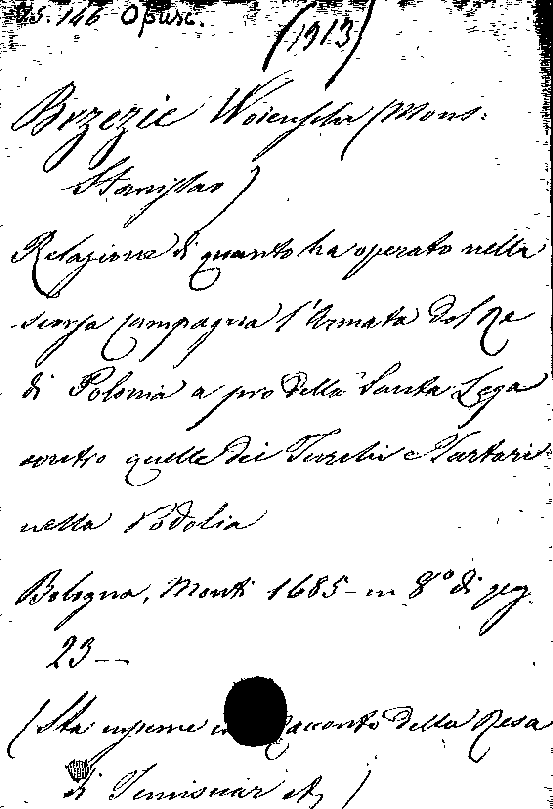 146 Opusc.
(1913)
Brzezie (Mons:
Stanislao)
Relazione di quanto ha operato nella
scorsa campagna l'Armata del Re
di Polonia a pro della Santa Lega
contro quelle dei Turchi e Tartari
nella Podolia
Bologna, Monti 1685 - in 8° di pag.
23 -
(Sta insieme Racconto della Resa
di Temisvar